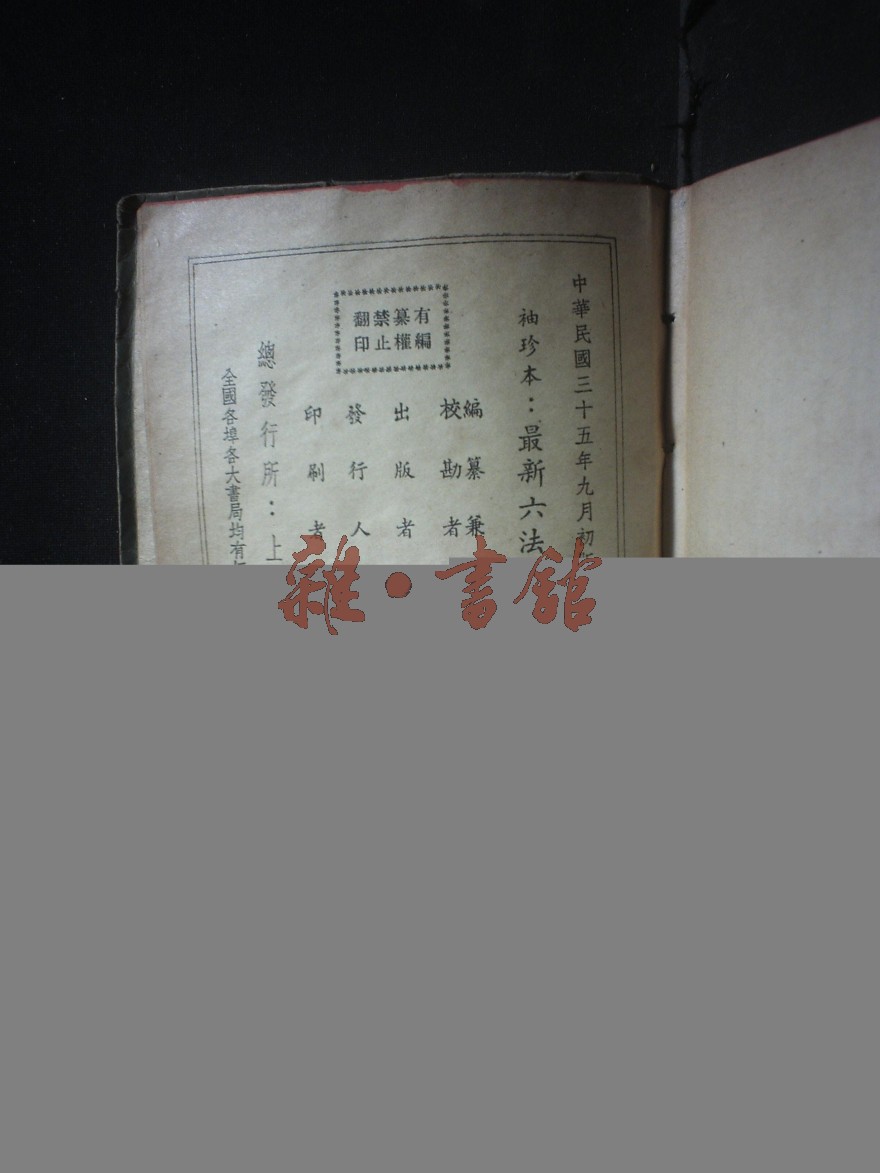 中華民國三十五年九月初版
袖珍本：最新六法
有編
纂權
禁止
翻印
編纂兼
校勘者
出版者
發行人
印刷者
總發行所：上
全國各埠各大書局均有
雜·書館